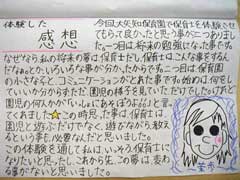 体験した
感想
今回大矢知保育園で保育士を体験させ
てもらって良かったと思う事が二つありまし
た。一つ目は将来の勉強になった事です。
なぜなら、私の将来の夢は保育士だし保育士はこんな事をするん
だなぁとかいろいろな事が分かったからです。二つ目は、保育園
の小さな子と、コミュニケーションがとれた事です。始めは、何をし
ていいか分からずただ園児の様子を見ていただけでした。けれど
園児の何人かが「いっしょにあそぼうよ。」と言っ
てくれました★この時思った事は、保育士は、
園児と遊ぶだけでなく、遊びながら教え
るという事も必要なんだと思いました。
この体験を通して私は、いっそう保育士に
なりたいと思ったし、これから先この夢は変わ
る事がないと思いました。